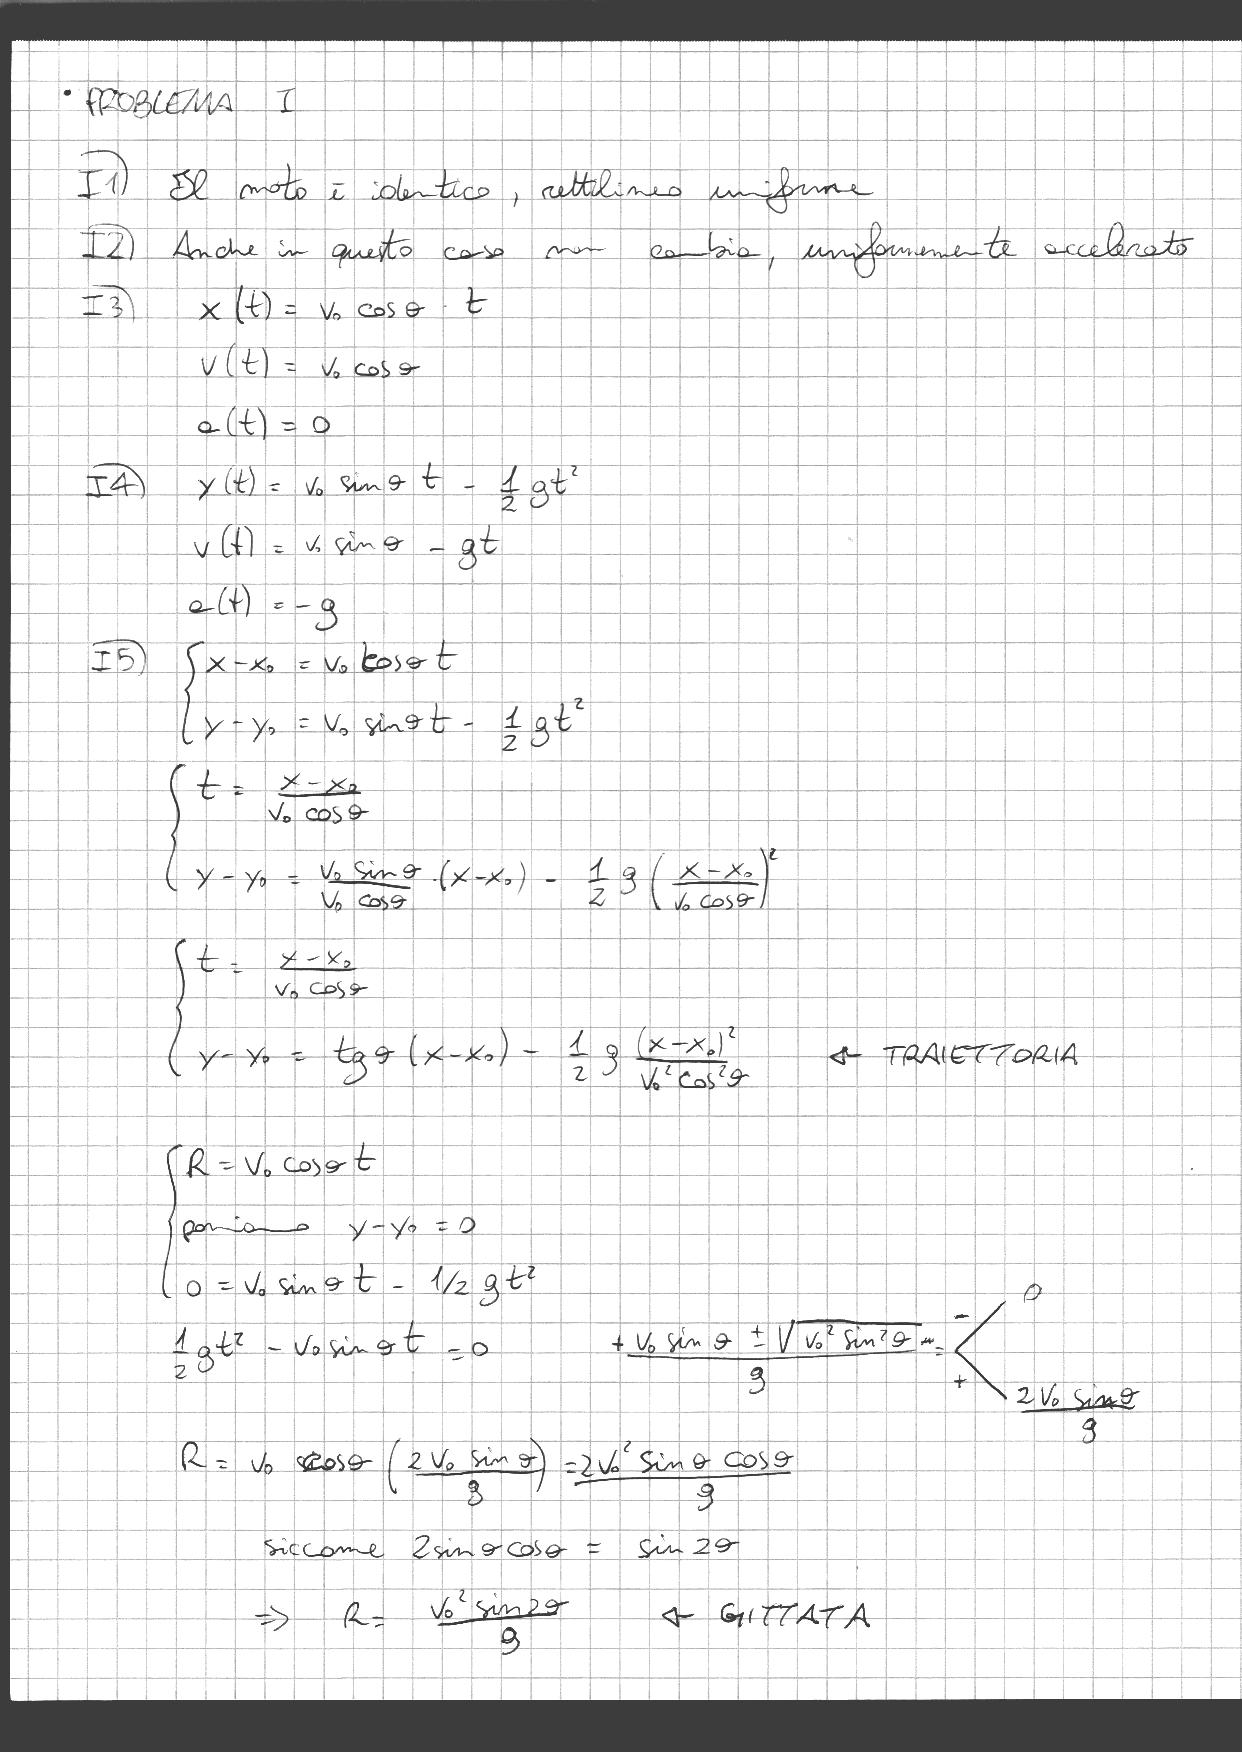 • PROBLEMA I
I1) Il moto è identico, rettilineo uniforme
I2) Anche in questo caso non cambia, uniformemente accelerato
I3) x(t) = v₀ cosθ · t
v(t) = v₀ cosθ
a(t) = 0
I4) y(t) = v₀ sinθ t - 1/2 gt²
v(t) = v₀ sinθ - gt
a(t) = -g
I5) { x-x₀ = v₀ cosθ t
y-y₀ = v₀ sinθ t - 1/2 gt²
{ t = (x-x₀)/(v₀ cosθ)
y-y₀ = (v₀ sinθ)/(v₀ cosθ) · (x-x₀) - 1/2 g ((x-x₀)/(v₀ cosθ))²
{ t = (x-x₀)/(v₀ cosθ)
y-y₀ = tgθ (x-x₀) - 1/2 g (x-x₀)²/(v₀² cos²θ) ← TRAIETTORIA
{ R = v₀ cosθ t
poniamo y-y₀ = 0
0 = v₀ sinθ t - 1/2 gt²
1/2 gt² - v₀ sinθ t = 0 (+v₀ sinθ ± √(v₀² sin²θ))/g = - 0
+ (2v₀ sinθ)/g
R = v₀ cosθ ((2v₀ sinθ)/g) = (2v₀² sinθ cosθ)/g
siccome 2sinθcosθ = sin2θ
⇒ R = (v₀² sin2θ)/g ← GITTATA